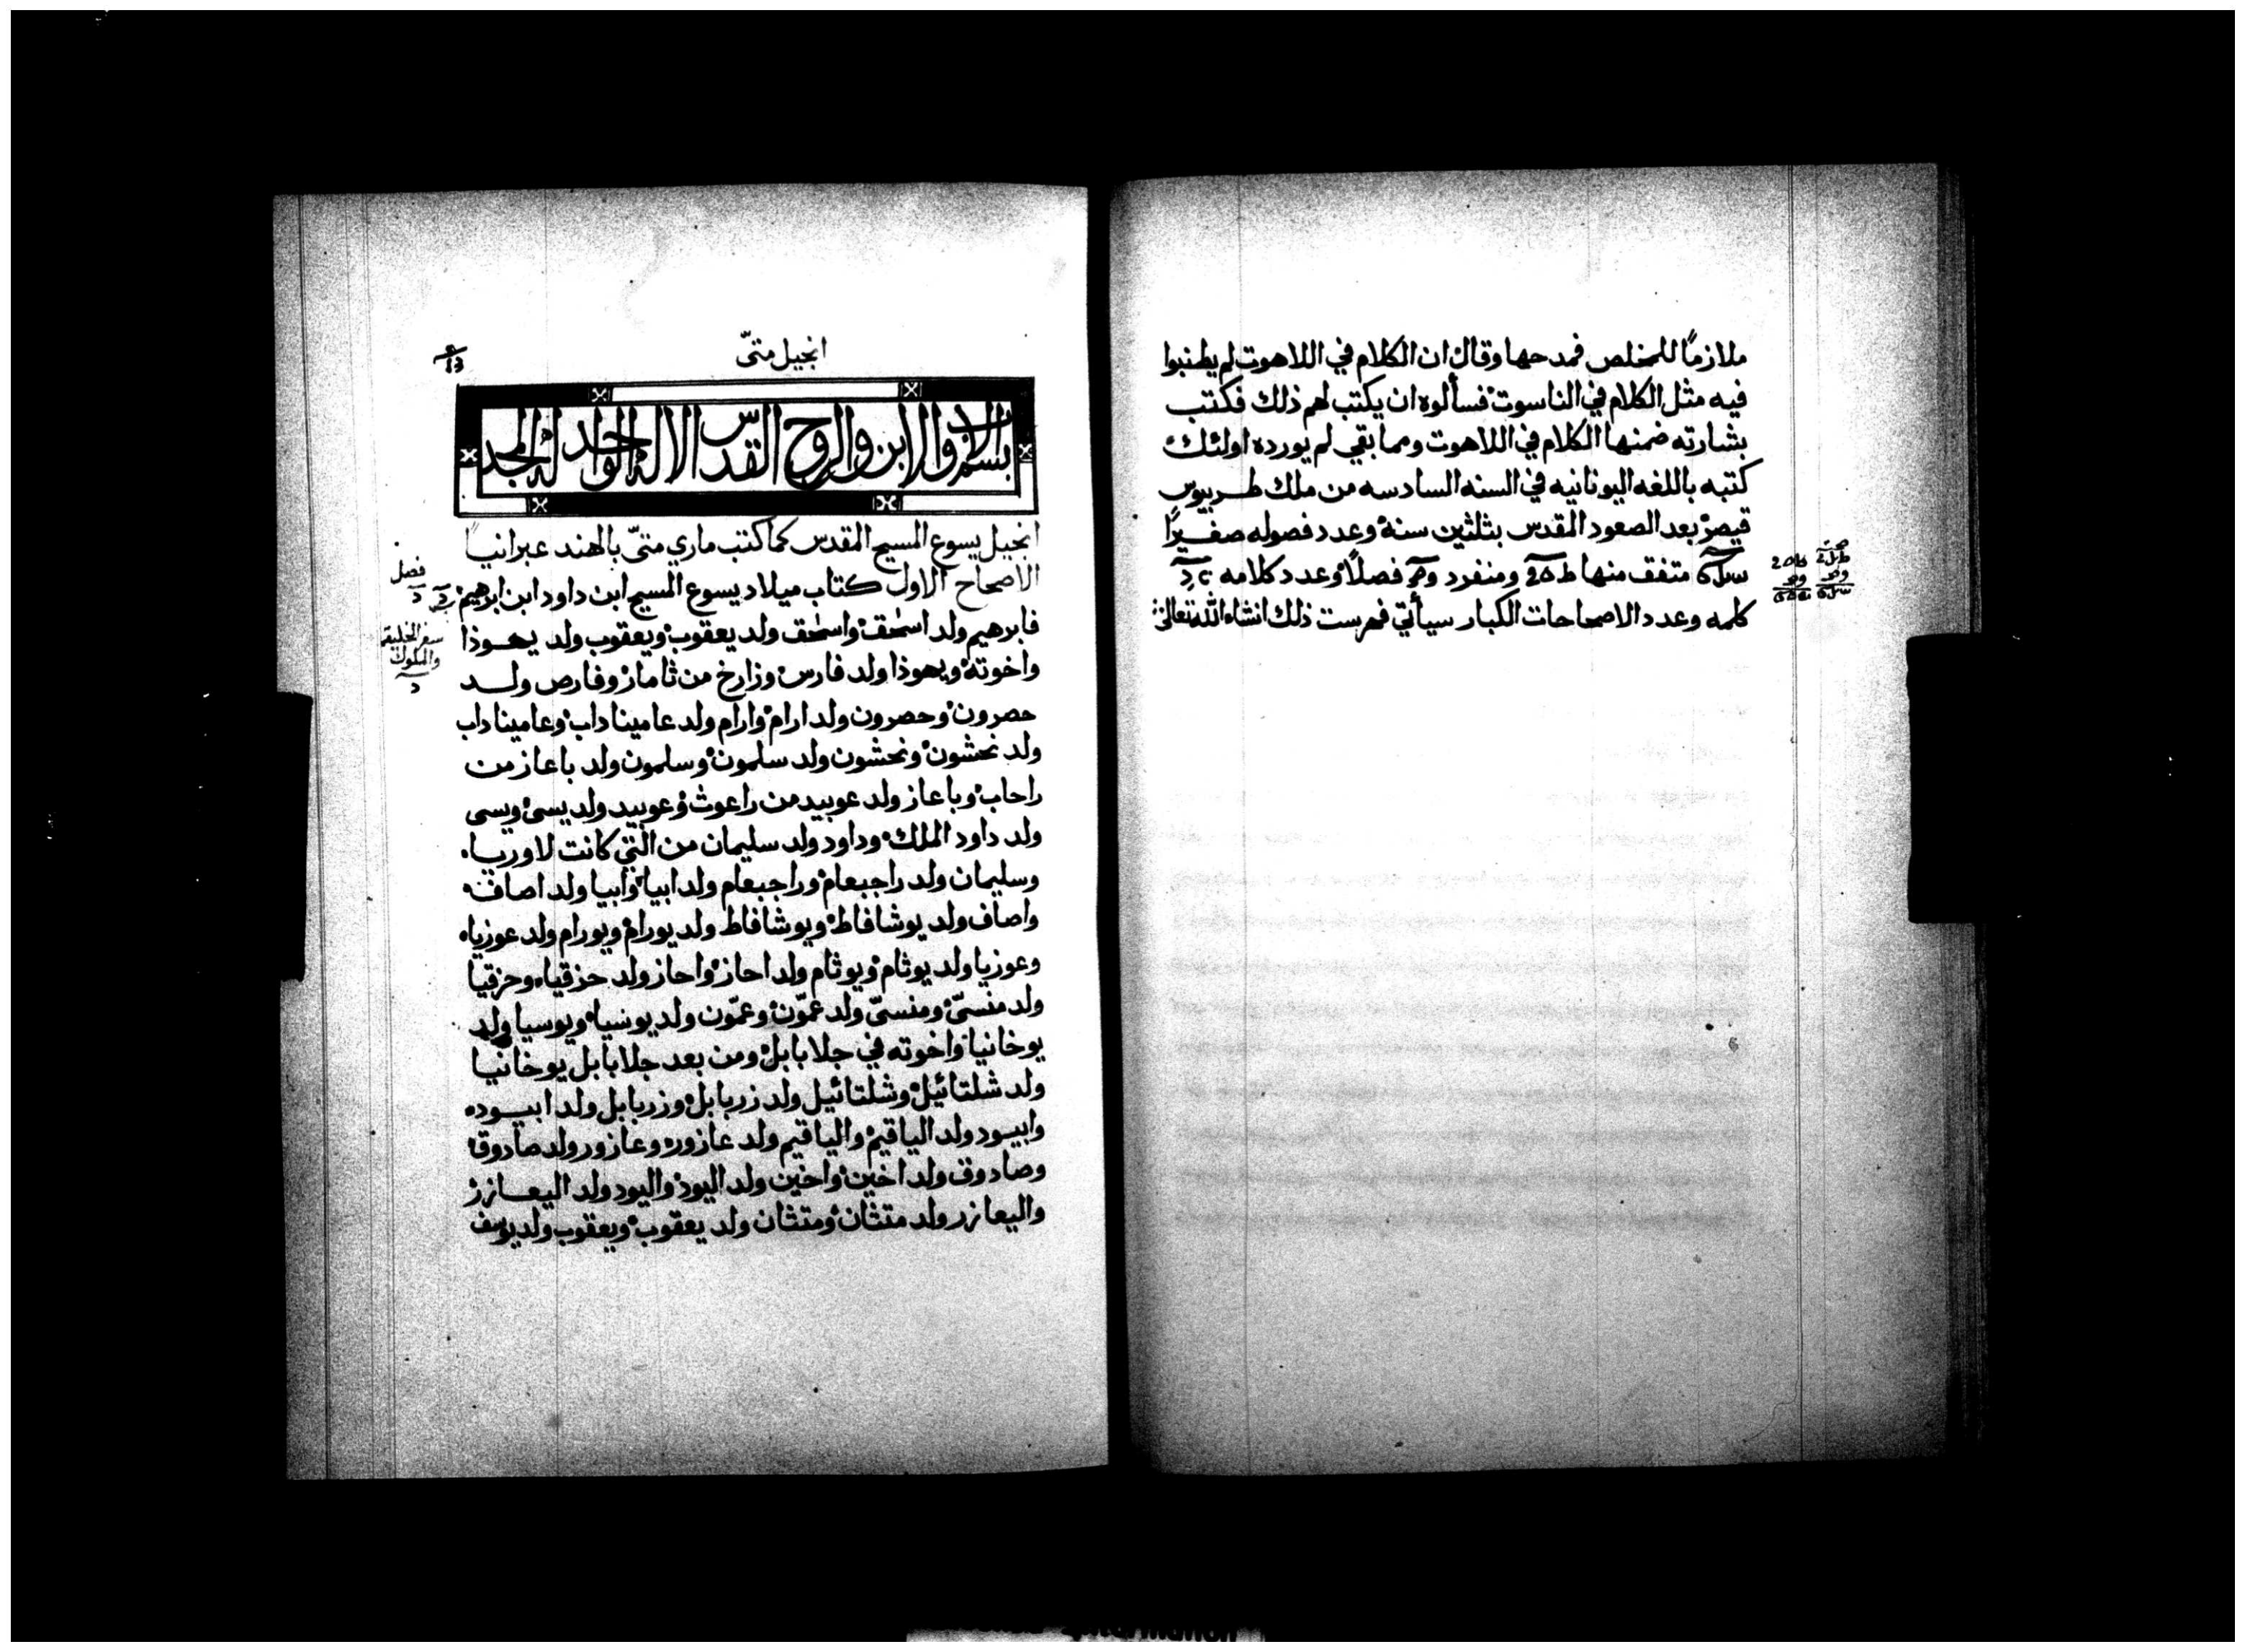 ملازمًا للمخلص فمدحها وقال ان الكلام في اللاهوت لم يطنبوا
فيه مثل الكلام في الناسوت فسألوه ان يكتب لهم ذلك فكتب
بشارته ضمنها الكلام في اللاهوت ومما بقي لم يورده اولئك
كتبه باللغه اليونانيه في السنه السادسه من ملك طـــريبوس
قيصر بعد الصعود المقدس بثلثين سنة وعدد فصوله صغـــيرًا
متفق منها ومنفرد فصلاً وعدد كلامه
كلمه وعدد الاصحاحات الكبار سيأتي فهرست ذلك انشاء الله تعالى
انجيل متىّ
13
بسم الاب والابن والروح القدس الاله الواحد له المجد
انجيل يسوع المسيح المقدس كما كتب ماري متىّ بالهند عبرانيـاً
الاصحاح الاول كتاب ميلاد يسوع المسيح ابن داود ابن ابرهيم
فصل
فابرهيم ولد اسحق واسحق ولد يعقوب ويعقوب ولد يهـــوذا
سفر الخليقة
والملوك
واخوته ويهوذا ولد فارس وزارخ من ثامار وفارص ولـــد
حصرون وحصرون ولد ارام وارام ولد عاميناداب وعاميناداب
ولد نحشون ونحشون ولد سلمون وسلمون ولد باعاز من
راحاب وباعاز ولد عوبيد من راعوث وعوبيد ولد يسى ويسى
ولد داود الملك وداود ولد سليمان من التي كانت لاوريـــا
وسليمان ولد راجبعام وراجبعام ولد ابيا وابيا ولد اصاف
واصاف ولد يوشافاط ويوشافاط ولد يورام ويورام ولد عوزيا
وعوزيا ولد يوثام ويوثام ولد احاز واحاز ولد حزقيا وحزقيا
ولد منسىّ ومنسىّ ولد عمّون وعمّون ولد يوسيا ويوسيا ولد
يوخانيا واخوته في جلا بابل ومن بعد جلا بابل يوخانيـا
ولد شلتائيل وشلتائيل ولد زربابل وزربابل ولد ابيـــود
وابيـود ولد الياقيم والياقيم ولد عازور وعازور ولد صادوق
وصادوق ولد اخين واخين ولد اليود واليود ولد اليعـــازر
واليعازر ولد متثان ومتثان ولد يعقوب ويعقوب ولد يوسف